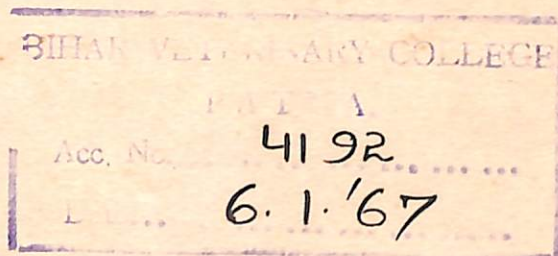 BIHAR VETERINARY COLLEGE
PATNA.
Acc. No. 4192
6.1.'67